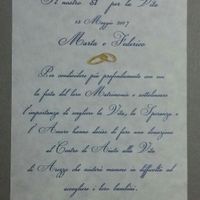 nostro Sì per la Vita
13 Maggio 2007
Marta e Federico
Per condividere più profondamente con voi
la festa del loro Matrimonio e sottolineare
l'importanza di scegliere la Vita, la Speranza e
l'Amore hanno deciso di fare una donazione
al Centro di Aiuto alla Vita
di Arezzo che aiuterà mamme in difficoltà ad
accogliere i loro bambini.